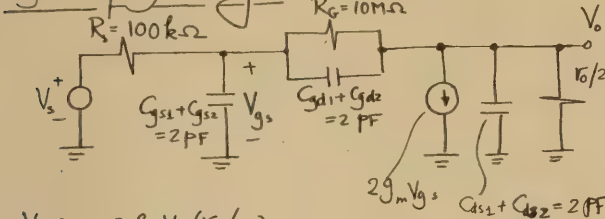 R_G = 10MΩ
R_s = 100kΩ
V_o
V_s + −
C_gs1 + C_gs2 = 2 PF
+ V_gs −
C_gd1 + C_gd2 = 2 PF
r_o/2
2g_m V_gs
C_ds1 + C_ds2 = 2 PF